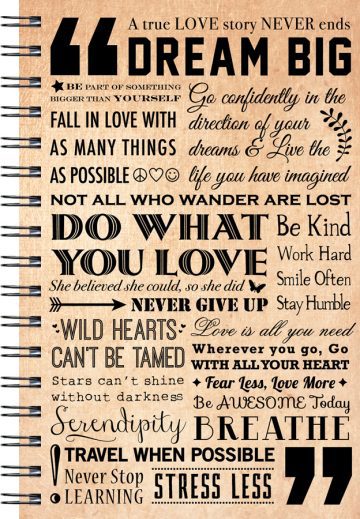 A true LOVE story NEVER ends
DREAM BIG
BE PART OF SOMETHING
BIGGER THAN YOURSELF
FALL IN LOVE WITH
AS MANY THINGS
AS POSSIBLE
Go confidently in the
direction of your
dreams & Live the
life you have imagined
NOT ALL WHO WANDER ARE LOST
DO WHAT
YOU LOVE
Be Kind
Work Hard
Smile Often
Stay Humble
She believed she could, so she did
NEVER GIVE UP
WILD HEARTS
CAN'T BE TAMED
Love is all you need
Wherever you go, Go
WITH ALL YOUR HEART
Stars can't shine
without darkness
Fear Less, Love More
Be AWESOME Today
Serendipity
BREATHE
TRAVEL WHEN POSSIBLE
Never Stop
LEARNING
STRESS LESS